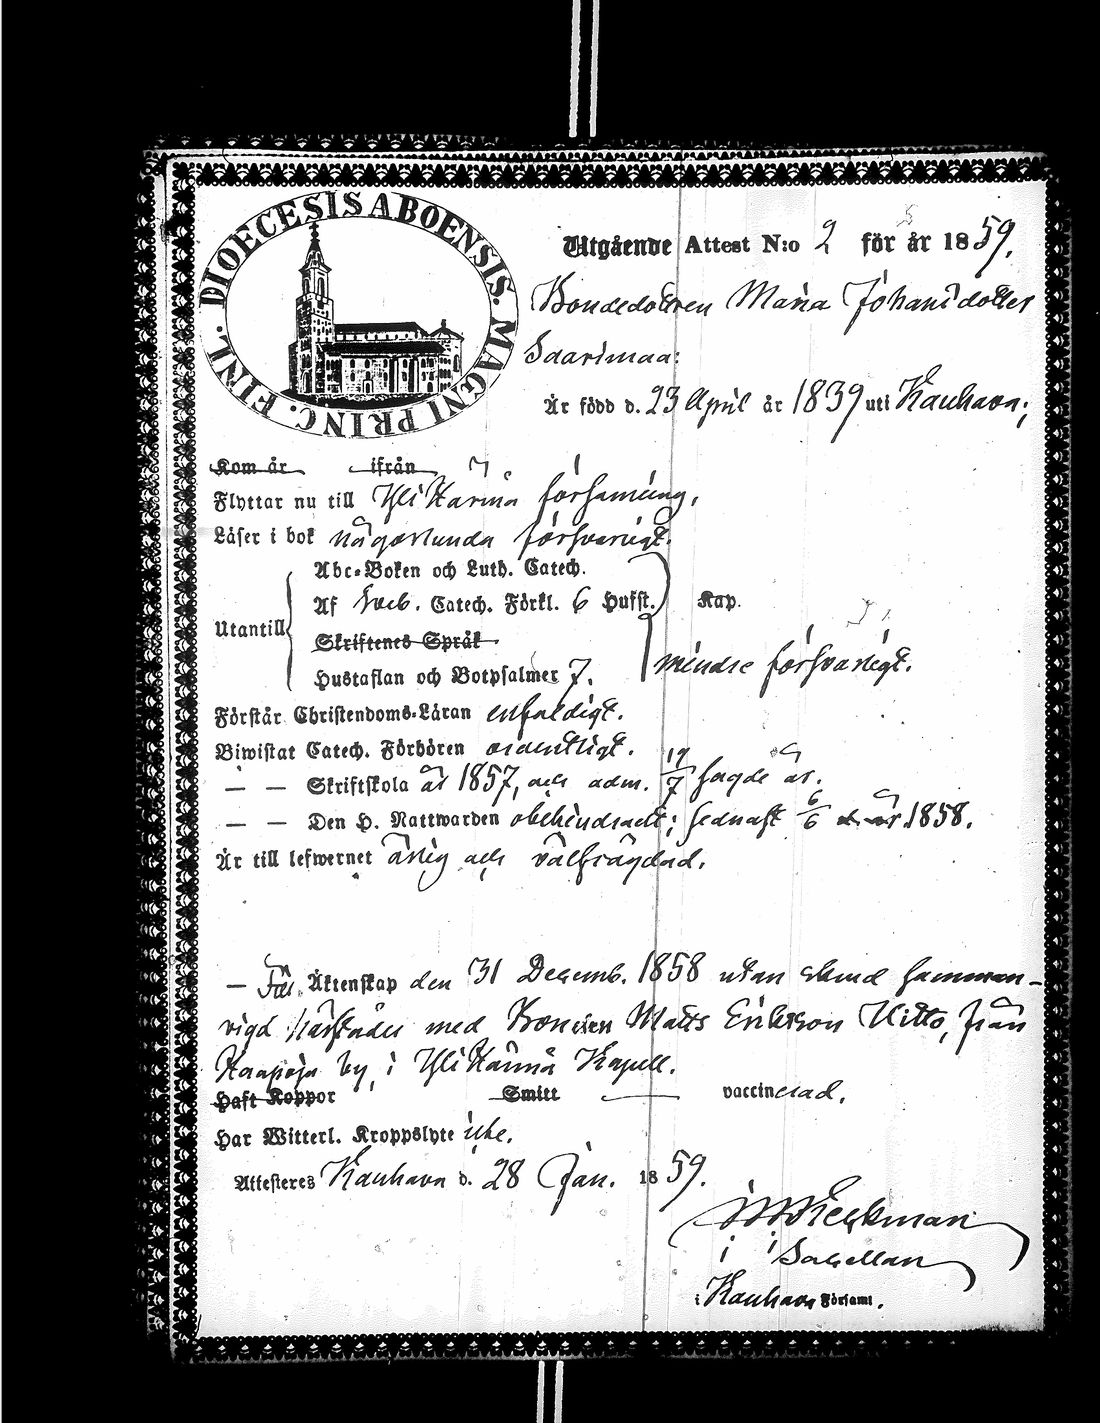 DIOECESIS ABOENSIS. MAGNI PRINC. FINL.
Utgående Attest N:o 2 för år 1859.
Bondedottren Maria Johansdotter
Saarimaa:
Är född d. 23 April år 1839 uti Kauhava;
Kom år ifrån
Flyttar nu till Yli Härmä församling,
Läser i bok någorlunda försvarligt.
Abc-Boken och Luth. Catech.
Af Sveb. Catech. Förkl. 6 Hufst. Kap.
Utantill
Skriftenes Språk
mindre försvarligt.
Hustaflan och Botpsalmer 7.
Förstår Christendoms-Läran enfaldigt.
Biwistat Catech. Förhören ordentligt.
— — Skriftskola år 1857, och adm. 19/7 sagde år.
— — Den H. Nattwarden obehindradt; sednast 6/6 d. år 1858.
Är till lefwernet ärlig och välfrägdad.
— Till Äktenskap den 31 Decemb. 1858 utan hinder samman-
vigd härstädes med Matts Eriksson Kitto, från
Haapoja by, i Yli Härmä Kapell.
Haft Koppor Smitt vaccinerad.
Har Witterl. Kroppslyte icke.
Attesteres Kauhava d. 28 Jan. 1859.
Sacellan
i Kauhava Församl.